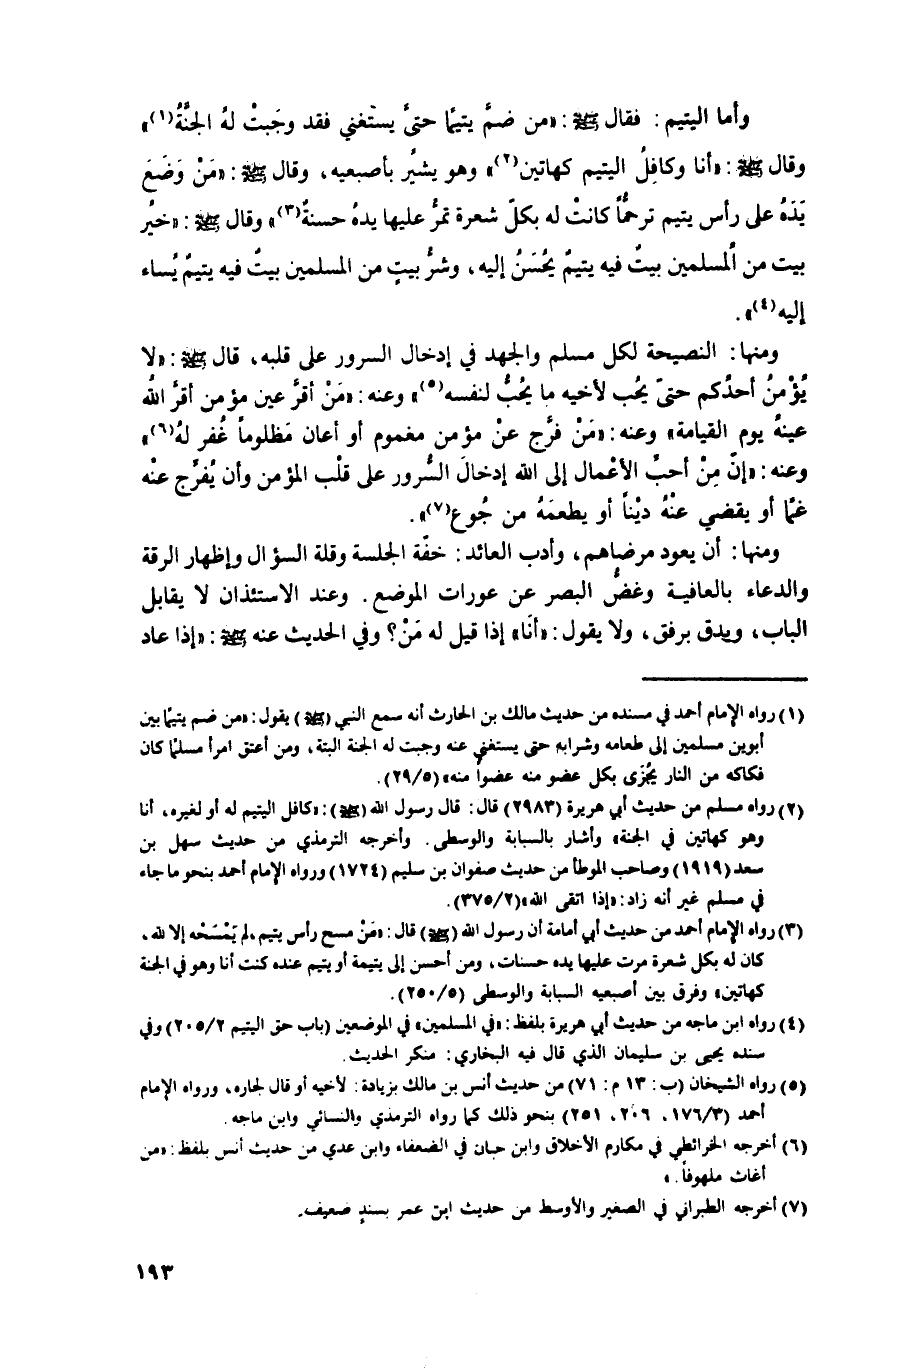 وأما اليتيم : فقال ﷺ : «من ضمَّ يتيمًا حتىَّ يستغني فقد وجَبتْ لهُ الجنَّةُ(١)»
وقال ﷺ : «أنا وكافِلُ اليتيم كهاتين(٢)» وهو يشيُر بأصبعيه، وقال ﷺ : «مَنْ وَضَعَ
يَدَهُ على رأس يتيم ترحُّماً كانتْ له بكلّ شعرة تمرُّ عليها يدهُ حسنةٌ(٣)» وقال ﷺ : «خيُر
بيت من اُلمسلمين بيتٌ فيه يتيمٌ يُحْسَنُ إليه، وشرُّ بيتٍ من المسلمين بيتٌ فيه يتيمٌ يُساء
إليه(٤)» .
ومنها : النصيحة لكل مسلم والجهد في إدخال السرور على قلبه، قال ﷺ : «لا
يُؤْمنُ أحدُكم حتىّ يُحب لأخيه ما يُحبُّ لنفسه(٥)» وعنه : «مَنْ أقرَّ عين مؤمن أقرَّ اللهُ
عينهُ يوم القيامة» وعنه : «مَنْ فرَّج عنْ مؤمن مغموم أو أعان مَظلوماً غُفر لهُ(٦)»
وعنه : «إنّ مِنْ أحبِّ الأعْمال إلى الله إدخالَ السُّرور على قلْب المؤمن وأن يُفرِّج عنْه
غمًا أو يقضي عنْهُ ديْناً أو يطعمَهُ من جُوع(٧)» .
ومنها : أن يعود مرضاهم، وأدب العائد : خفّة الجلسة وقلة السؤال وإظهار الرقة
والدعاء بالعافيـة وغضُّ البصر عن عورات الموضع . وعند الاستئذان لا يقابل
الباب، ويدق برفق، ولا يقول : «أنَا» إذا قيل له مَنْ؟ وفي الحديث عنه ﷺ : «إذا عاد
(١) رواه الإمام أحمد في مسنده من حديث مالك بن الحارث أنه سمع النبي (ﷺ) يقول : «من ضم يتيمًا بين
أبوين مسلمين إلى طعامه وشرابه حتى يستغني عنه وجبت له الجنة البتة، ومن أعتق امرأ مسلمًا كان
فكاكه من النار يُجْزَى بكل عضو منه عضواً منه» (٢٩/٥) .
(٢) رواه مسلم من حديث أبي هريرة (٢٩٨٣) قال : قال رسول الله (ﷺ) : «كافل اليتيم له أو لغيره، أنا
وهو كهاتين في الجنة» وأشار بالسبابة والوسطى . وأخرجه الترمذي من حديث سهل بن
سعد (١٩١٩) وصاحب الموطأ من حديث صفوان بن سليم (١٧٢٤) ورواه الإمام أحمد بنحو ما جاء
في مسلم غير أنه زاد : «إذا اتقى الله» (٣٧٥/٢) .
(٣) رواه الإمام أحمد من حديث أبي أمامة أن رسول الله (ﷺ) قال : «مَنْ مسح رأس يتيم، لم يَمْسَحْه إلا لله،
كان له بكل شعرة مرت عليها يده حسنات، ومن أحسن إلى يتيمة أو يتيم عنده كنت أنا وهو في الجنة
كهاتين» وفرق بين أصبعيه السبابة والوسطى (٢٥٠/٥) .
(٤) رواه ابن ماجه من حديث أبي هريرة بلفظ : «في المسلمين» في الموضعين (باب حق اليتيم ٢٠٥/٢) وفي
سنده يحيى بن سليمان الذي قال فيه البخاري : منكر الحديث .
(٥) رواه الشيخان (ب : ١٣ م : ٧١) من حديث أنس بن مالك بزيادة : لأخيه أو قال لجاره، ورواه الإمام
أحمد (١٧٦/٣، ٢٠٦، ٢٥١) بنحو ذلك كما رواه الترمذي والنسائي وابن ماجه .
(٦) أخرجه الخرائطي في مكارم الأخلاق وابن حبان في الضعفاء وابن عدي من حديث أنس بلفظ : «من
أغاث ملهوفاً . »
(٧) أخرجه الطبراني في الصغير والأوسط من حديث ابن عمر بسندٍ ضعيف .
١٩٣